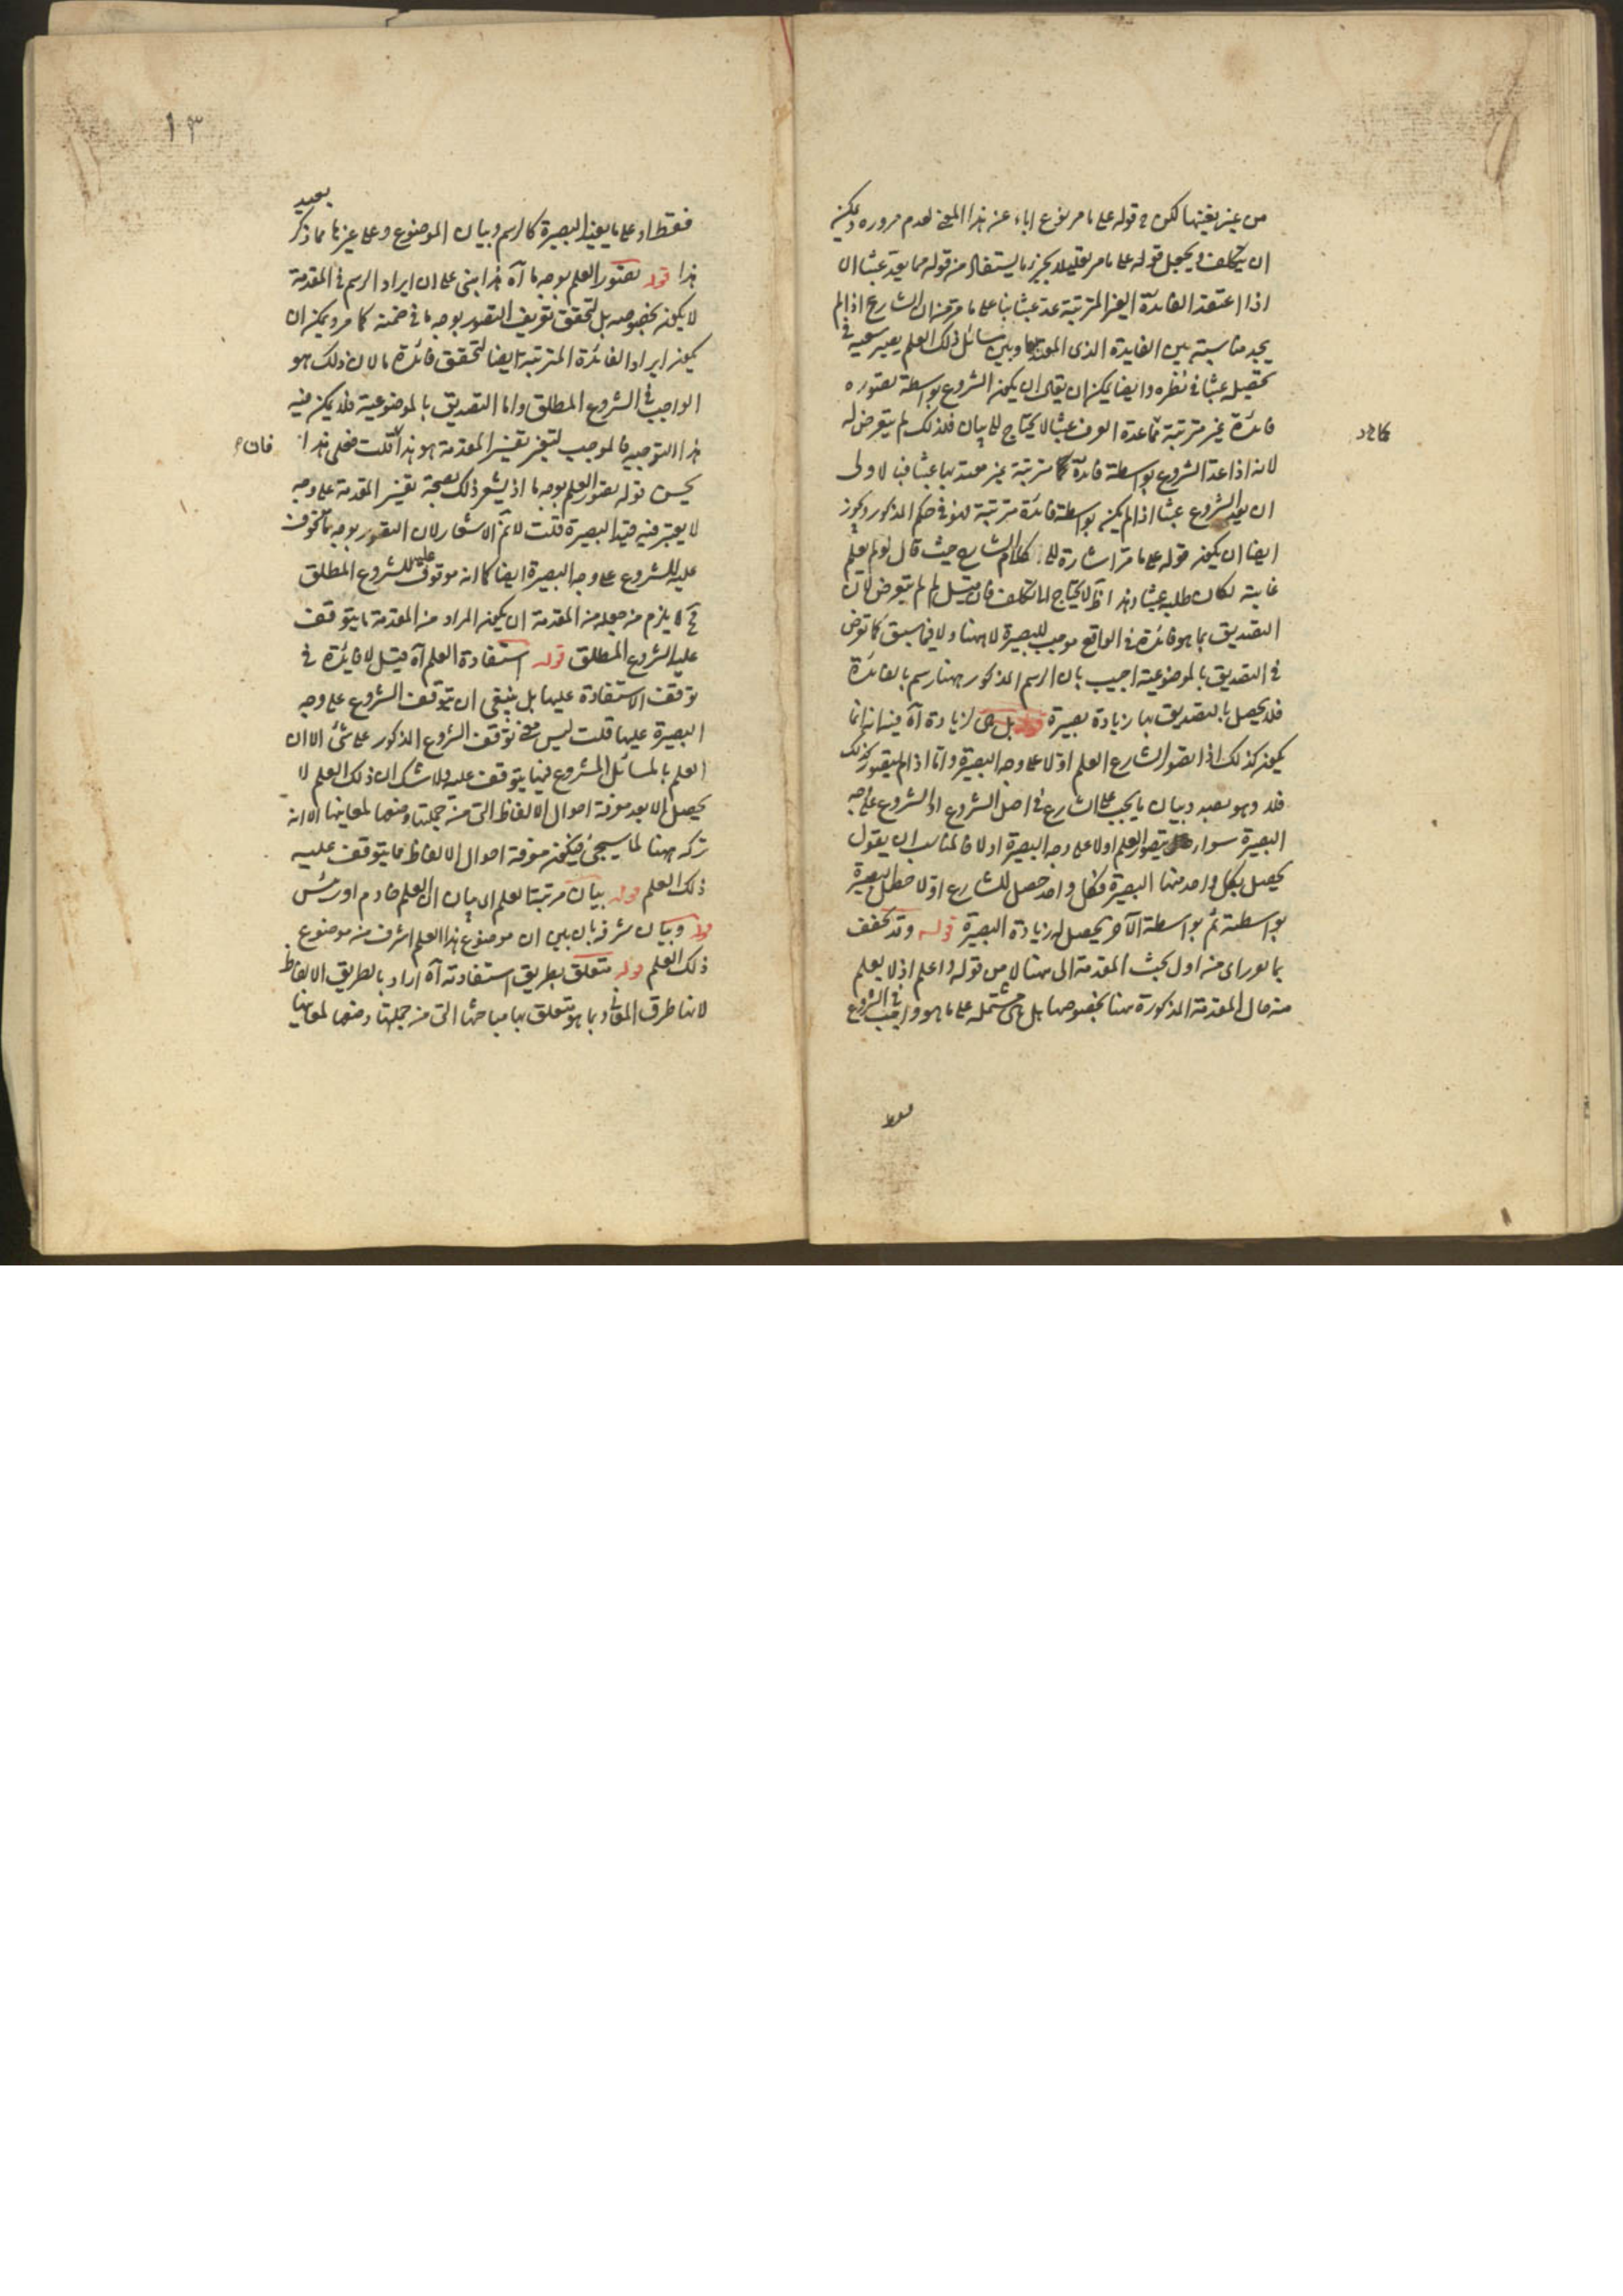 من غير يقينها لكن في قوله على ما مر نوع اباء عن هذا المعنى لعدم مروره ويمكن
ان يتكلف ويجعل قوله على ما مر تعليلا من قوله مما يعد عبثا ان
اذا اعتقد الفائدة الغير المترتبة عد عبثا بناء على ما مر من ان الشارع اذا لم
يجد مناسبة بين الفايدة الذي وبين مسائل ذلك العلم يصير سعيه في
تحصيله عبثا في نظره وايضا يمكن ان يقال ان يكون الشروع بواسطة تصوره
فائدة غير مترتبة العرف عبثا لا يحتاج الى بيان فلذلك لم يتعرض له
لانه اذا عد الشروع بواسطة فائدة مترتبة غير معتد بها عبثا فبالاولى
ان يعد الشروع عبثا اذا لم يكن بواسطة فائدة مترتبة في حكم المذكور ويجوز
ايضا ان يكون قوله على ما مر اشارة الى كلام الشارح حيث قال لو لم يعلم
غايته لكان طلبه عبثا وهذا لا يحتاج الى التكلف فان قيل لم لم يتعرض لان
التصديق بما هو فائدة في الواقع موجب للبصيرة لا ههنا ولا فيما سبق كما تعرض
في التصديق بالموضوعية اجيب بان الرسم المذكور ههنا رسم بالفائدة
فلا يحصل بالتصديق بها زيادة بصيرة قوله بل هي لزيادة آه فيه انه انما
يكون كذلك اذا تصور الشارع العلم اولا على وجه البصيرة واما اذا لم يتصور كذلك
فلا وهو بصدد بيان ما يجب على الشارع في اصل الشروع او الشروع على وجه
البصيرة سواء يتصور العلم اولا على وجه البصيرة او لا فالمناسب ان يقول
يحصل بكل واحد منها البصيرة فكل واحد حصل للشارع اولا حصل البصيرة
بواسطته ثم بواسطة الآخر يحصل له زيادة البصيرة قوله وقد تحقق
بما تورد اي من اول بحث المقدمة الى ههنا لا من قوله واعلم اذ لا يعلم
منه حال المقدمة المذكورة ههنا بخصوصها بل هي مشتملة على ما هو واجب في الشروع
فقط
فقط او على ما يفيد البصيرة كالرسم وبيان الموضوع وعلى غيرها مما ذكر بعيد
هذا قوله تصور العلم بوجه ما آه هذا مبني على ان ايراد الرسم في المقدمة
لا يكون بخصوصه بل لتحقق تعريف التصور بوجه ما في ضمنه كما مر ويمكن ان
يكون ايراد الفائدة المترتبة ايضا لتحقق فائدة ما لان ذلك هو
الواجب في الشروع المطلق واما التصديق بالموضوعية فلا يمكن فيه
هذا التوجيه فالموجب لتغير تفسير المقدمة هو هذا قلت فعلى هذا فان
يحسن قوله تصور العلم بوجه ما اذ يشعر ذلك بصحة تفسير المقدمة على وجه
لا يعتبر فيه قيد البصيرة قلت لا نم الاشعار لان التصور بوجه ما موقوف
عليه للشروع على وجه البصيرة ايضا كما انه موقوف عليه للشروع المطلق
فح لا يلزم من جعله من المقدمة ان يكون المراد من المقدمة ما يتوقف
عليه الشروع المطلق قوله استفادة العلم آه قيل لا فائدة في
توقف الاستفادة عليها بل ينبغي ان يتوقف الشروع على وجه
البصيرة عليها قلت ليس معنى توقف الشروع المذكور على شئ الا ان
العلم بالمسائل المشروع فيها يتوقف عليه ولا شك ان ذلك العلم لا
يحصل الا بعد معرفة احوال الالفاظ التي من جملتها وضعها لمعانيها الا انه
تركه ههنا لما سيجئ فيكون معرفة احوال الالفاظ مما يتوقف عليه
ذلك العلم قوله بيان مرتبة العلم اي بيان ان العلم خادم او رئيس
قوله وبيان شرفه بان بين ان موضوع هذا العلم اشرف من موضوع
ذلك العلم قوله متعلق بطريق استفادته آه اراد بالطريق الالفاظ
لانها طرق المعاني وبما هو يتعلق بها مباحثها التي من جملتها وضعها لمعانيها